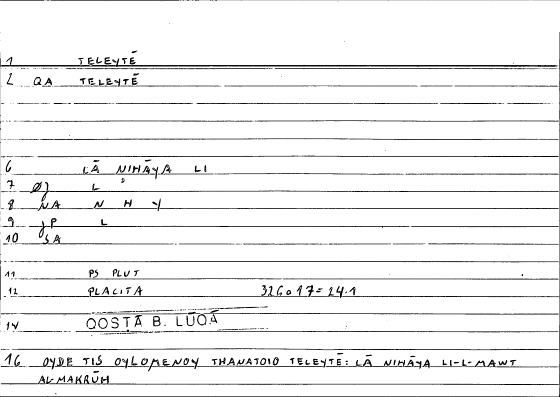 1 TELEYTĒ
2 QA TELEYTĒ
6 LĀ NIHĀYA LI
7 ØJ L
8 NA N H Y
9 JP L
10 SA
11 PS PLUT
12 PLACITA 326a17=24.1
14 QOSṬĀ B. LŪQĀ
16 OYDE TIS OYLOMENOY THANATOIO TELEYTĒ: LĀ NIHĀYA LI-L-MAWT
AL-MAKRŪH